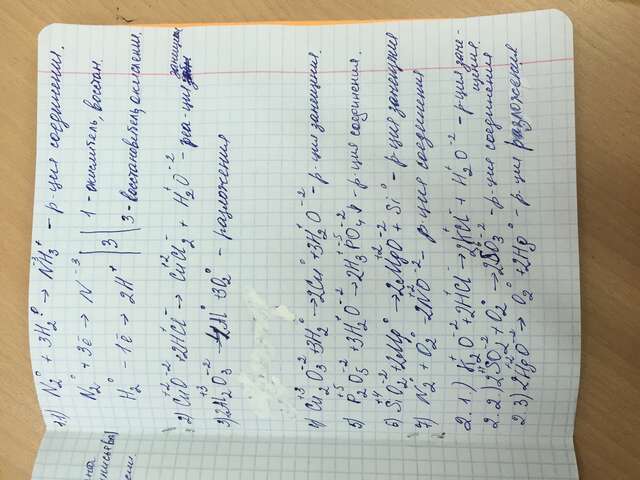 на
письвон)
сии.
1.1) N₂⁰ + 3H₂⁰ → N⁻³H₃⁺ - р-ция соединения.
N₂⁰ + 3ē → N⁻³ | 3 | 1 - окислитель, восстан.
H₂⁰ - 1ē → 2H⁺ 3 - восстановитель, окисления.
2) Cu⁺²O⁻² + 2H⁺Cl⁻ → Cu⁺²Cl₂⁻ + H₂⁺O⁻² - реа-ция замещен
3) 2Al₂⁺³O₃⁻² → 4Al⁰ + 3O₂⁰ - разложения
4) Cu₂⁺³O₃⁻² + 3H₂⁰ → 2Cu⁰ + 3H₂⁺O⁻² - р-ция замещения.
5) P₂⁺⁵O₅⁻² + 3H₂⁺O⁻² → 2H₃⁺P⁻⁵O₄⁻² - р-ция соединения.
6) Si⁺⁴O₂⁻² + 2Mg⁰ → 2Mg⁺²O⁻² + Si⁰ - р-ция замещения
7) N₂⁰ + O₂⁰ → 2N⁺²O⁻² - р-ция соединения
2.1.) K₂⁺O⁻² + 2H⁺Cl⁻ → 2K⁺Cl⁻ + H₂⁺O⁻² - р-ция заме-
щения.
2.2.) 2S⁺⁴O₂⁻² + O₂⁰ → 2SO₃⁻² - р-ция соединения
2.3) 2Hg⁺²O⁻² → O₂⁰ + 2Hg⁰ - р-ция разложения.